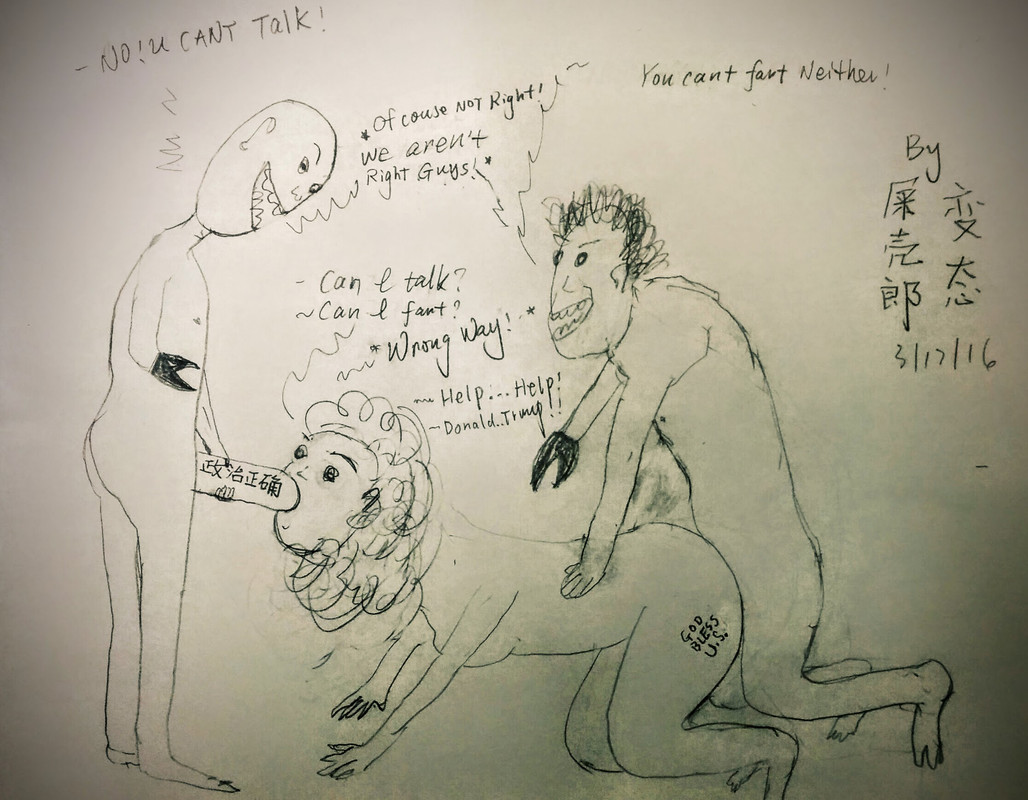 - NO! U CANT TALK!
*Of couse NOT Right!
We aren't
Right Guys!*
You cant fart Neither!
By
变态
屎壳郎
3/17/16
- Can I talk?
~ Can I fart?
*Wrong Way! *
~ Help!... Help!
~ Donald.. Trump!!
政治正确
GOD
BLESS
U.S.